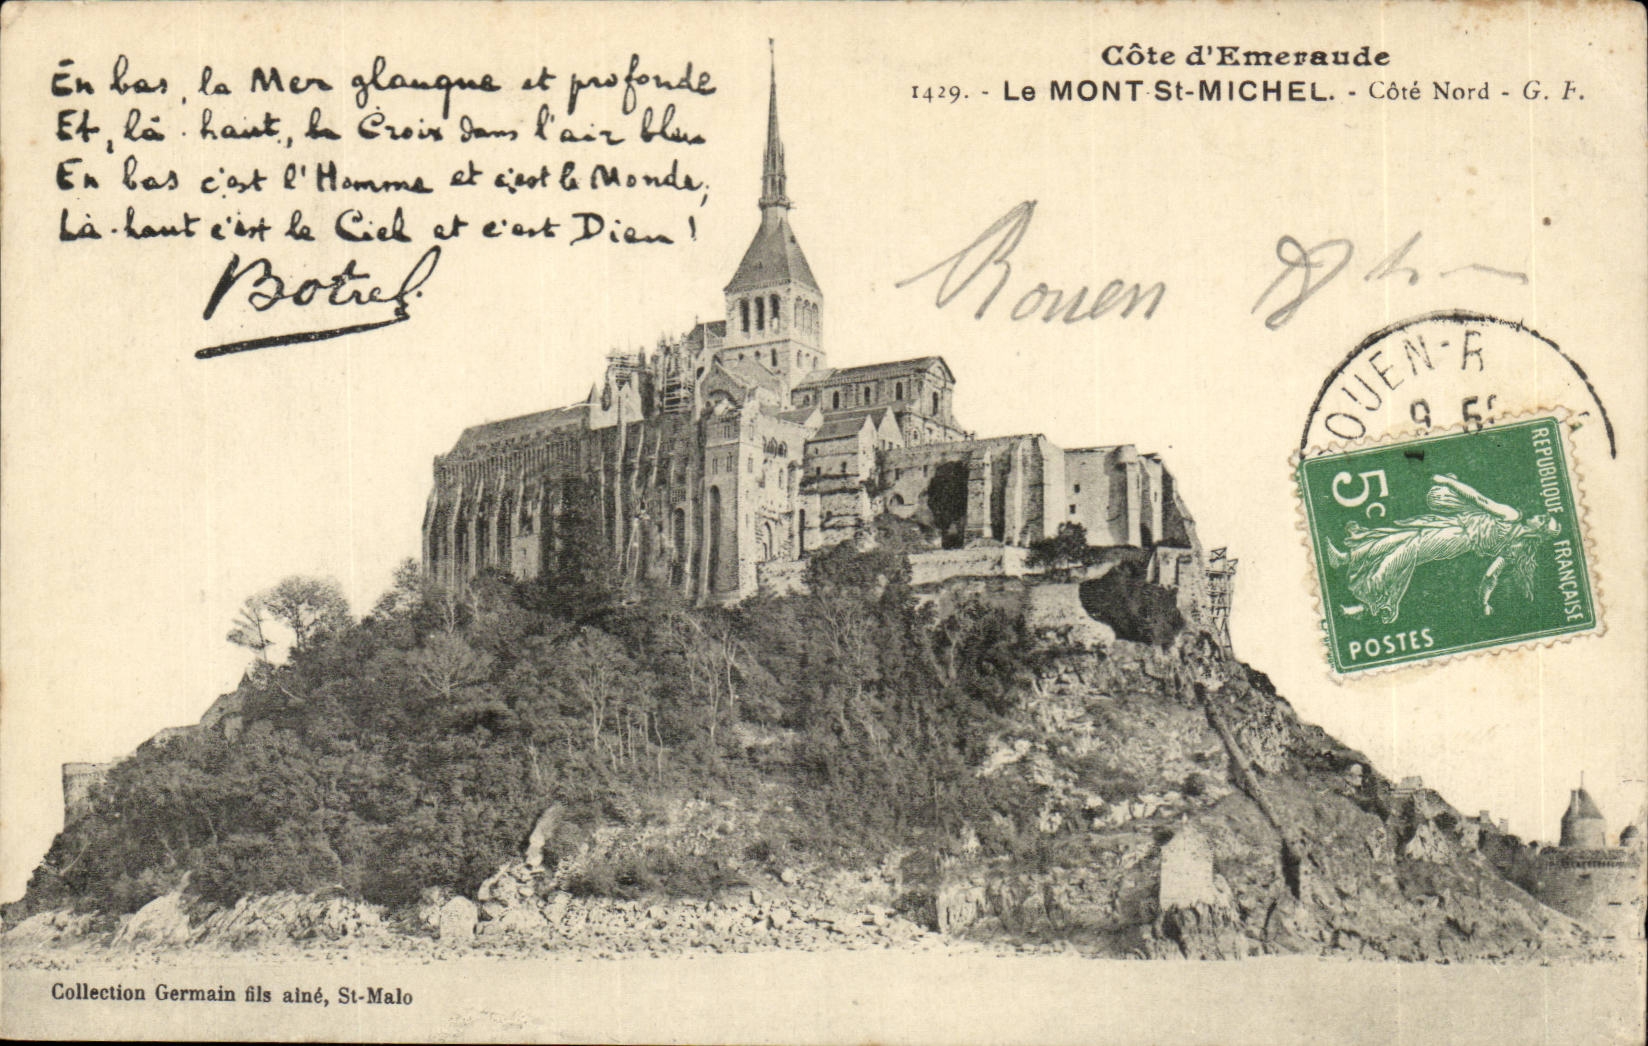 Côte d'Emeraude
1429. - Le MONT St-MICHEL. - Côté Nord - G. F.
En bas, la Mer glauque et profonde
Et, là-haut, la Croix dans l'air bleu
En bas c'est l'Homme et c'est le Monde;
Là-haut c'est le Ciel et c'est Dieu !
Botrel
Rouen
ROUEN-R
5c
REPUBLIQUE FRANÇAISE
POSTES
Collection Germain fils aîné, St-Malo